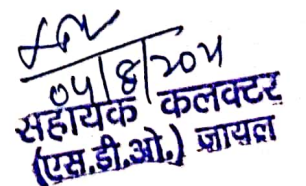 04/8/204
सहायक कलक्टर
(एस.डी.ओ.) जायल